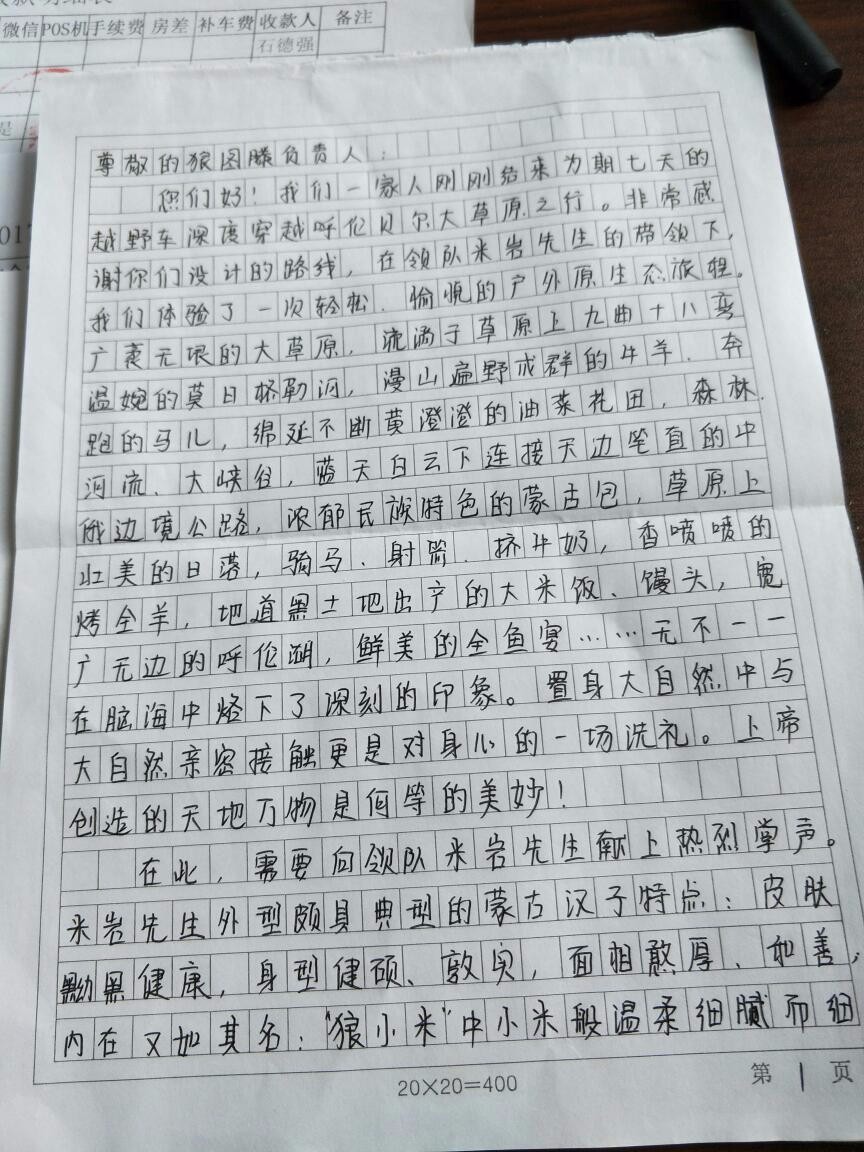 微信 POS机 手续费 房差 补车费 收款人 备注
石德强
是
尊敬的狼图腾负责人：
您们好！我们一家人刚刚结束为期七天的
越野车深度穿越呼伦贝尔大草原之行。非常感
谢你们设计的路线，在领队米岩先生的带领下，
我们体验了一次轻松、愉悦的户外原生态旅程。
广袤无垠的大草原，流淌于草原上九曲十八弯
温婉的莫日格勒河，漫山遍野成群的牛羊、奔
跑的马儿，绵延不断黄澄澄的油菜花田，森林、
河流、大峡谷，蓝天白云下连接天边笔直的中
俄边境公路，浓郁民族特色的蒙古包，草原上
壮美的日落，骑马、射箭、挤牛奶，香喷喷的
烤全羊，地道黑土地出产的大米饭、馒头，宽
广无边的呼伦湖，鲜美的全鱼宴……无不一一
在脑海中烙下了深刻的印象。置身大自然中与
大自然亲密接触更是对身心的一场洗礼。上帝
创造的天地万物是何等的美妙！
在此，需要向领队米岩先生献上热烈掌声。
米岩先生外型颇具典型的蒙古汉子特点：皮肤
黝黑健康，身型健硕、敦实，面相憨厚、和善，
内在又如其名：“狼小米”中小米般温柔细腻而细
20×20=400
第 1 页